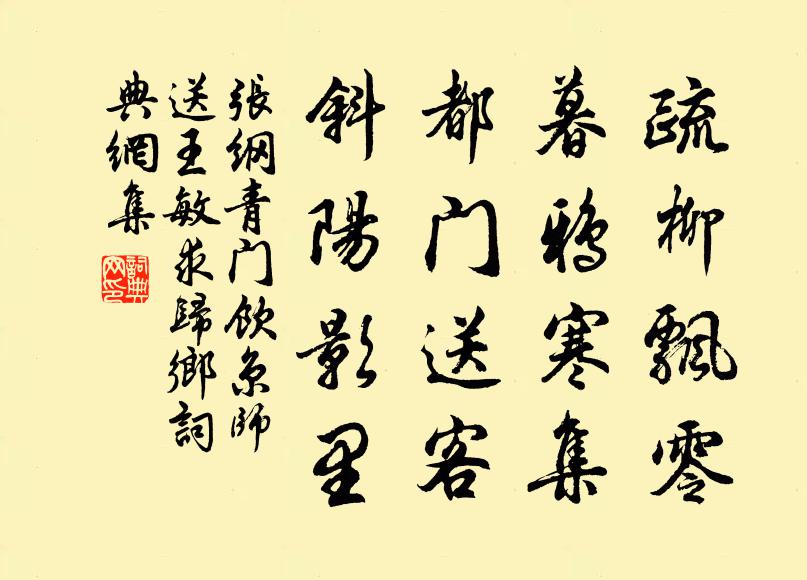 疏柳飄零
暮鴉寒集
都门送客
斜陽影里
張綱青门飲京師
送王敏求歸鄉詞
典網集
詞典网印